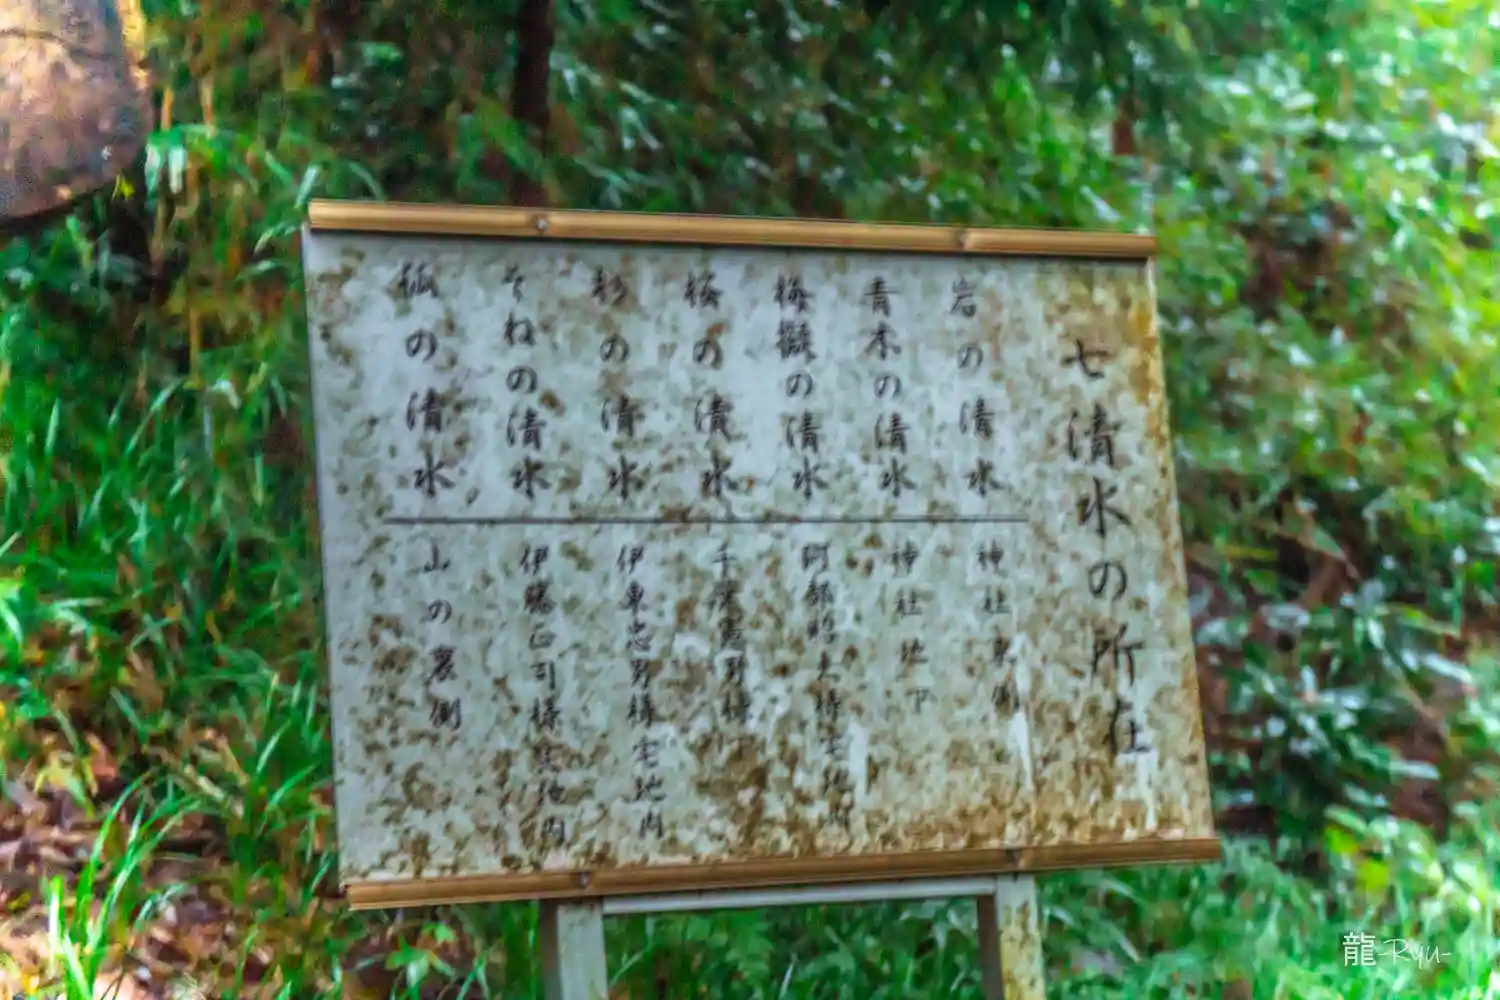 七清水の所在
岩の清水 神社東側
青木の清水 神社地下
梅擬の清水 阿部昭夫様宅地内
桜の清水 千葉憲野様
杉の清水 伊東忠男様宅地内
そねの清水 伊藤正司様宅地内
狐の清水 山の裏側
龍-Ryu-